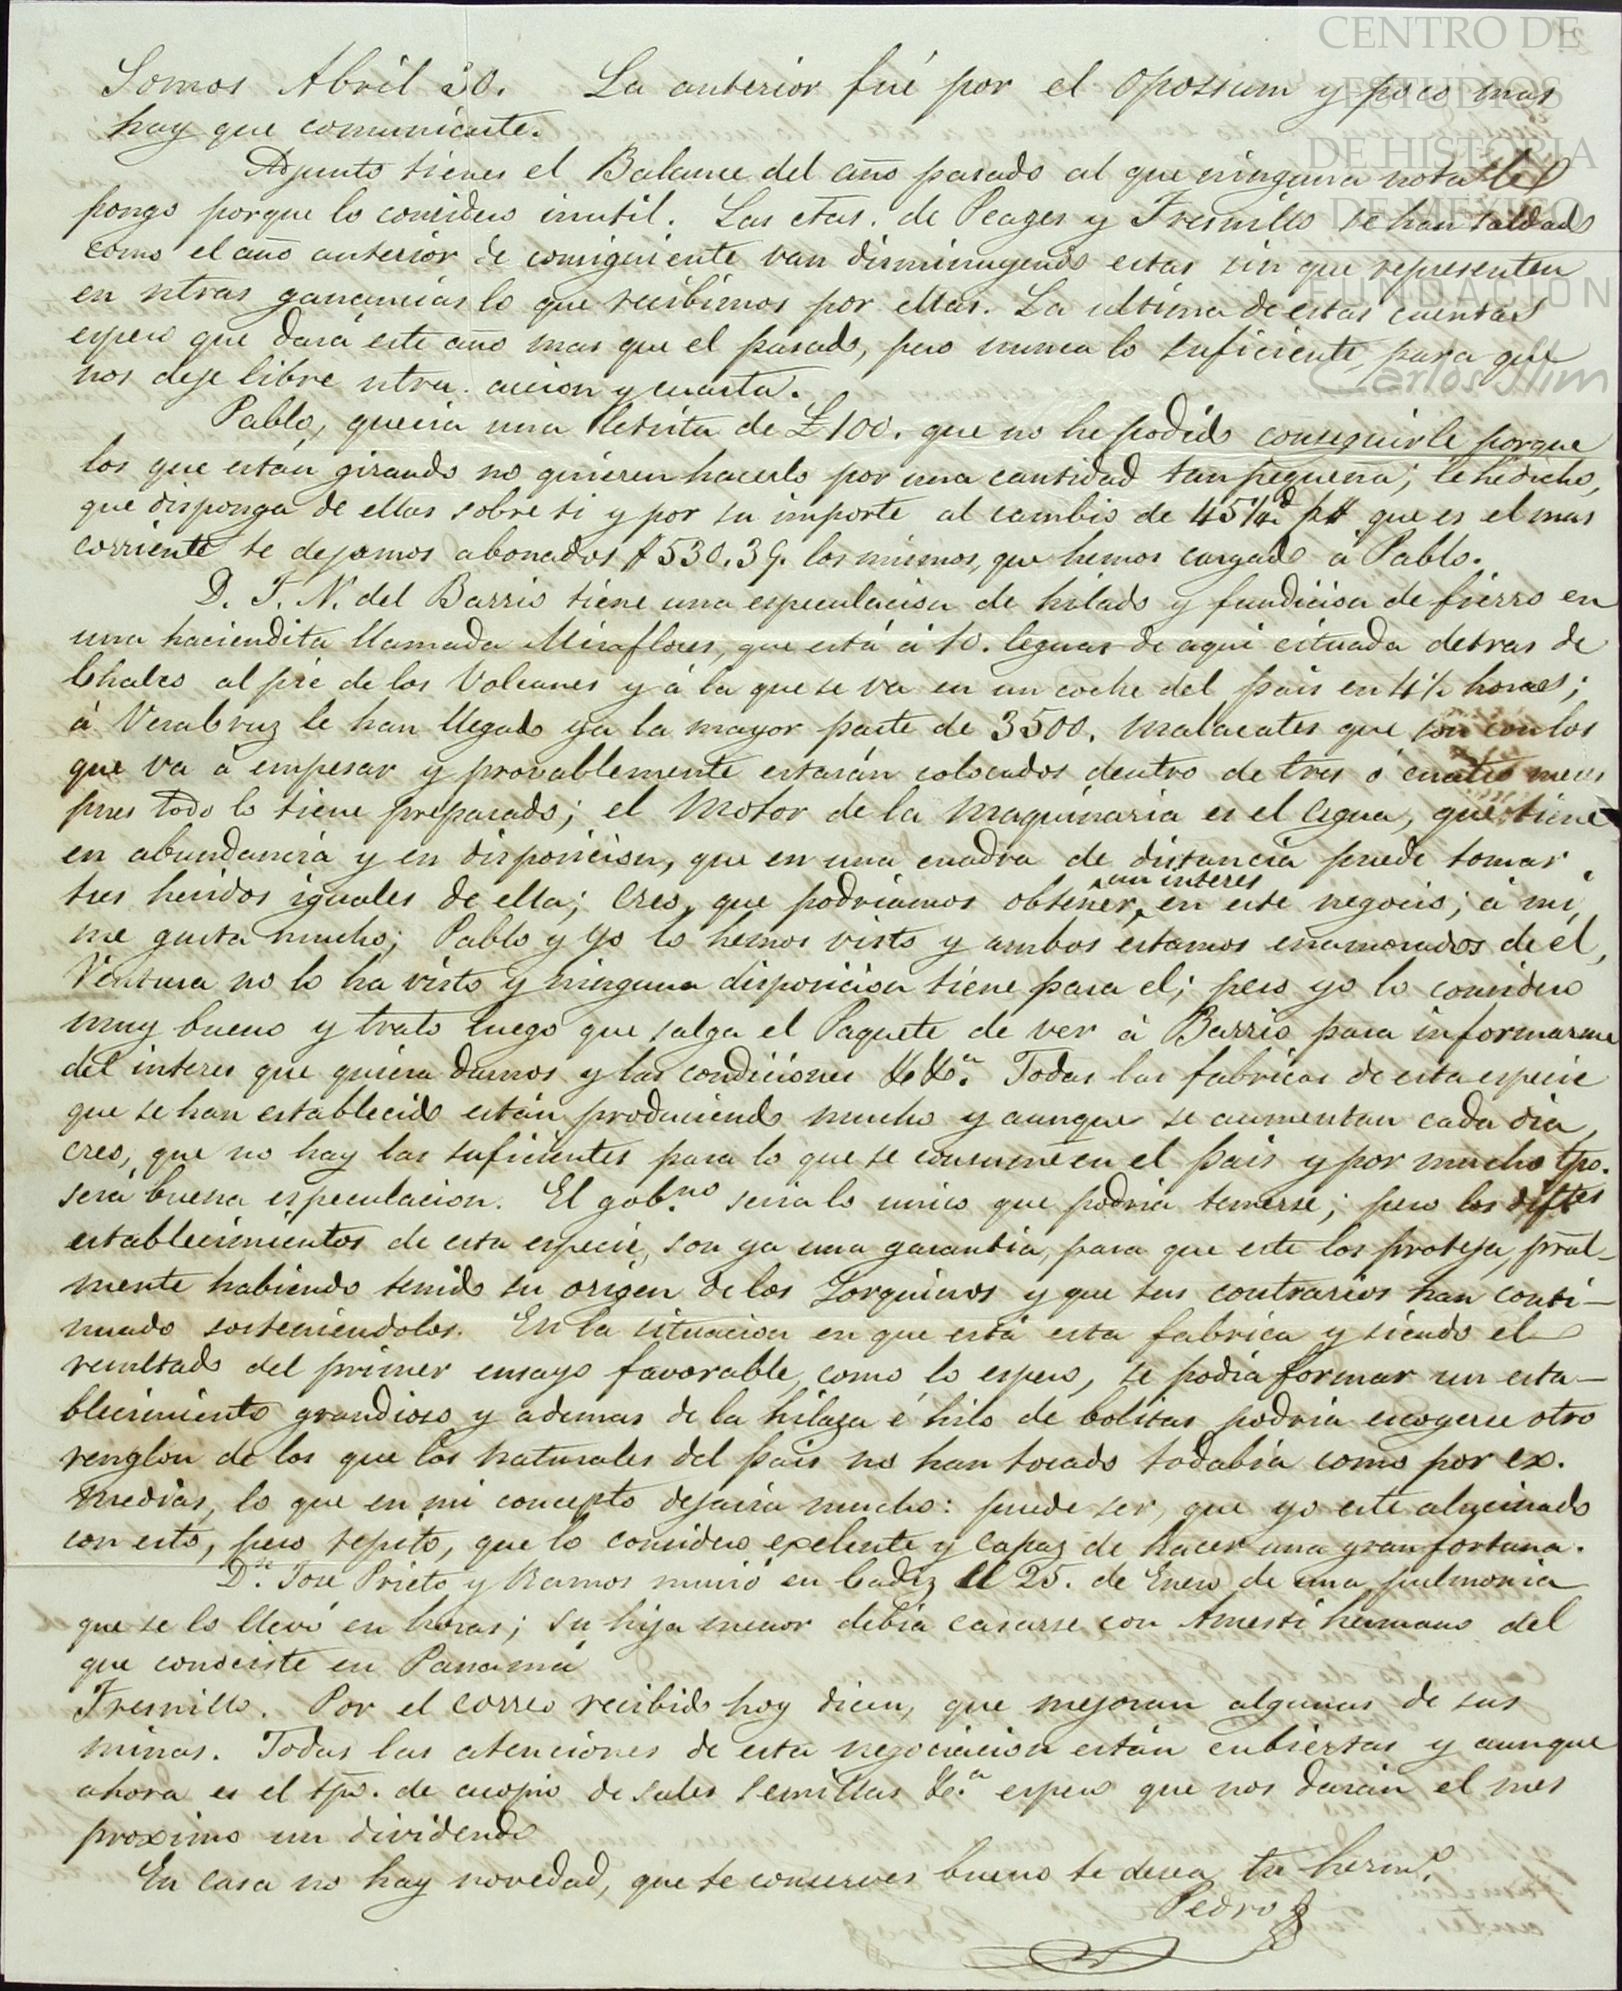 Somos Abril 20. La anterior fué por el Opossum y poco mas
hay que comunicarte.
Adjunto tienes el Balance del año pasado al que ninguna nota le
pongo porque lo considero inutil. Las ctas. de Peages y Fresnillo se han saldado
como el año anterior de consiguiente van disminuyendo estas sin que representen
en ntras ganancias lo que recibimos por ellas. La ultima de estas cuentas
espero que dará este año mas que el pasado, pero nunca lo suficiente, para que
nos deje libre ntra. accion y cuarta.
Pablo, queria una letrita de £100. que no he podido conseguirle porque
los que están girando no quieren hacerlo por una cantidad tan pequeña; le he dicho,
que disponga de ellas sobre ti y por su importe al cambio de 45¼d. p$ que es el mas
corriente te dejamos abonados $ 530.39. los mismos, que hemos cargado á Pablo.
D. J. N. del Barrio tiene una especulacion de hilado y fundicion de fierro en
una haciendita llamada Miraflores, que está á 10. leguas de aqui situada detras de
Chalco al pie de los Volcanes y á la que se va en un coche del pais en 4½ horas;
á VeraCruz le han llegado ya la mayor parte de 3500. malacates que son con los
que va á empesar y provablemente estarán colocados dentro de tres ó cuatro meses
pues todo lo tiene preparado; el motor de la maquinaria es el agua, que tiene
en abundancia y en disposicion, que en una cuadra de distancia puede tomar
tres heridos iguales de ella; creo, que podriamos obtener un interes en este negocio; á mi,
me gusta mucho; Pablo y yo lo hemos visto y ambos estamos enamorados de él,
Ventura no lo ha visto y ninguna disposicion tiene para el; pero yo lo considero
muy bueno y trato luego que salga el Paquete de ver á Barrio para informarme
del interes que quiera darnos y las condiciones &&a. Todas las fabricas de esta especie
que se han establecido están produciendo mucho y aunque se aumentan cada dia,
creo, que no hay las suficientes para lo que se consume en el pais y por mucho tpo.
será buena especulacion. El gobno. seria lo unico que podria temerse; pero los diftes
establecimientos de esta especie, son ya una garantia, para que este los proteja, pral-
mente habiendo tenido su origen de los Yorquinos y que sus contrarios han conti-
nuado sosteniendolos. En la situacion en que está esta fabrica y siendo el
resultado del primer ensayo favorable, como lo espero, se podia formar un esta-
blecimiento grandioso y ademas de la hilaza é hilo de bolitas podria escogerse otro
renglon de los que los naturales del pais no han tocado todabia como por ex.
medias, lo que en mi concepto dejaria mucho: puede ser, que yo esté alucinado
con esto, pero repito, que lo considero exelente y capaz de hacer una gran fortuna.
Dn. José Prieto y Ramos murió en Cadiz el 25. de Enero de una pulmonia
que se lo llevó en horas; su hija menor debia casarse con Amesti hermano del
que conociste en Panamá
Fresnillo. Por el correo recibido hoy dicen, que mejoran algunas de sus
minas. Todas las atenciones de esta negociacion están cubiertas y aunque
ahora es el tpo. de acopio de sales semillas &a. espero que nos darán el mes
proximo un dividendo
En casa no hay novedad, que te conserves bueno te desea tu hermo.
Pedro
CENTRO DE
ESTUDIOS
DE HISTORIA
DE MEXICO
FUNDACION
Carlos Slim